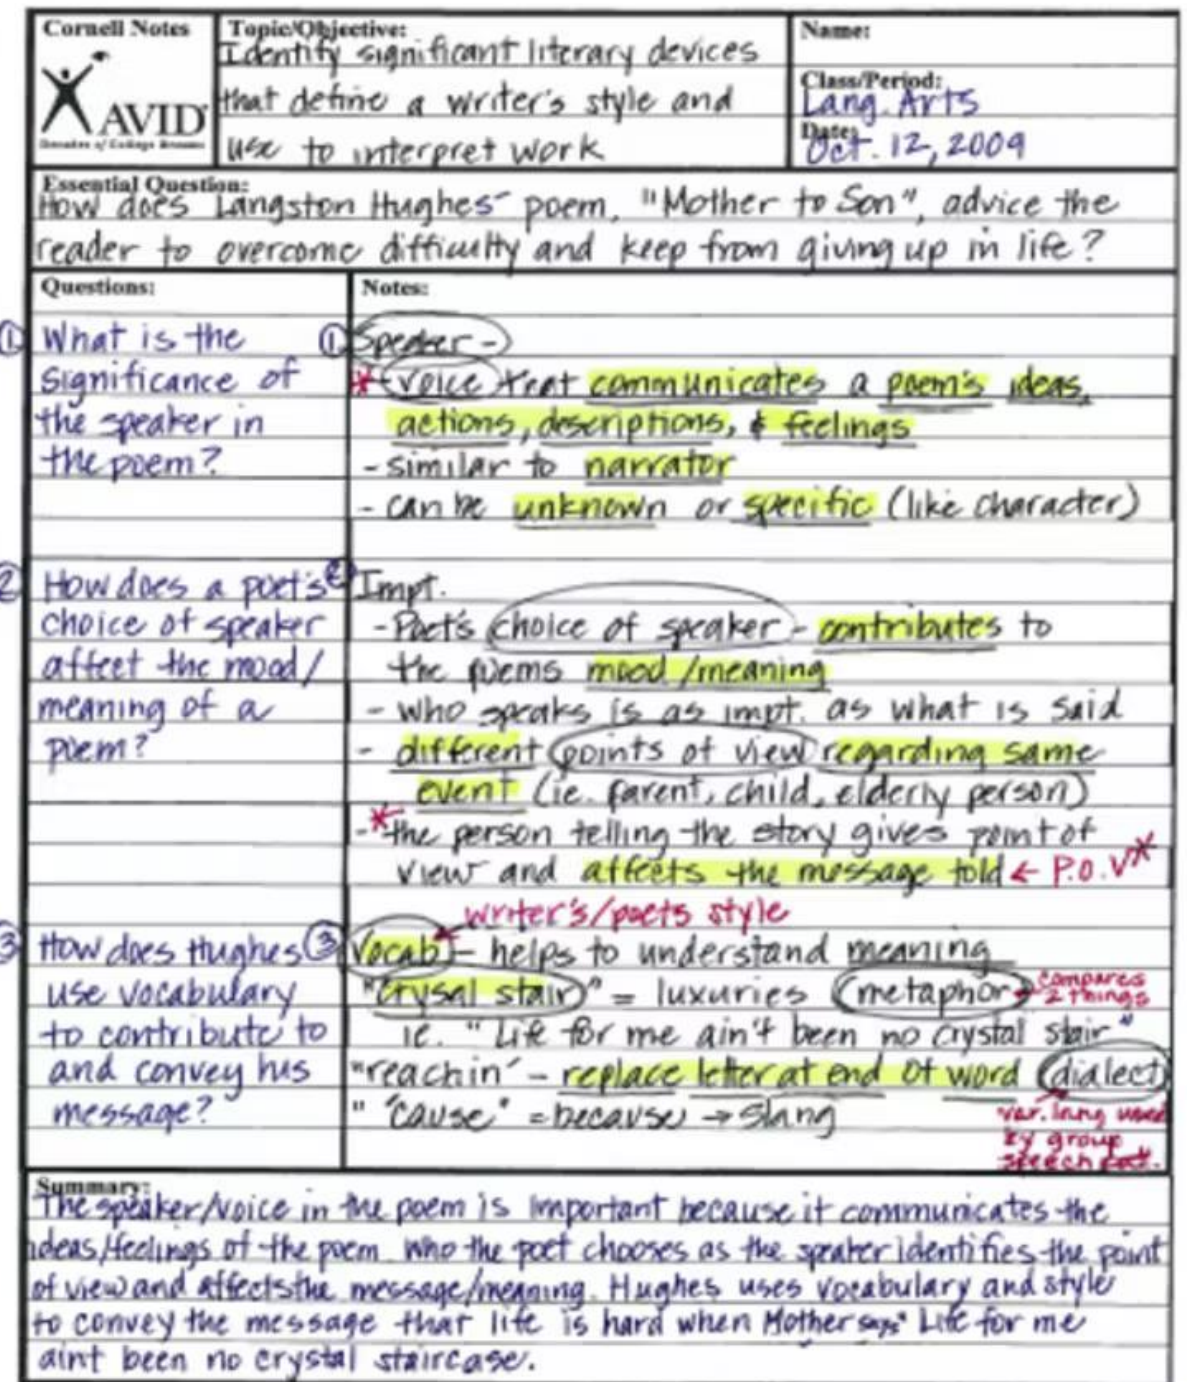 Cornell Notes
AVID
Decades of College Dreams
Topic/Objective:
Identify significant literary devices
that define a writer's style and
use to interpret work
Name:
Class/Period:
Lang. Arts
Date:
Oct. 12, 2009
Essential Question:
How does Langston Hughes' poem, "Mother to Son", advice the
reader to overcome difficulty and keep from giving up in life?
Questions:
① What is the
significance of
the speaker in
the poem?
② How does a poet's
choice of speaker
affect the mood/
meaning of a
poem?
③ How does Hughes
use vocabulary
to contribute to
and convey his
message?
Notes:
① Speaker -
* - voice that communicates a poem's ideas,
actions, descriptions, & feelings
- similar to narrator
- can be unknown or specific (like character)
② Impt.
- Poet's choice of speaker - contributes to
the poems mood/meaning
- who speaks is as impt. as what is said
- different points of view regarding same
event (ie. parent, child, elderly person)
- * the person telling the story gives point of
view and affects the message told ← P.O.V *
writer's/poets style
③ Vocab - helps to understand meaning
"Crysal stair" = luxuries (metaphor) → compares
2 things
ie. "Life for me ain't been no crystal stair"
"reachin' - replace letter at end of word (dialect)
" 'cause" = because → slang
var. lang used
by group
speech pat.
Summary:
The speaker/voice in the poem is important because it communicates the
ideas/feelings of the poem. Who the poet chooses as the speaker identifies the point
of view and affects the message/meaning. Hughes uses vocabulary and style
to convey the message that life is hard when Mother says "Life for me
aint been no crystal staircase.